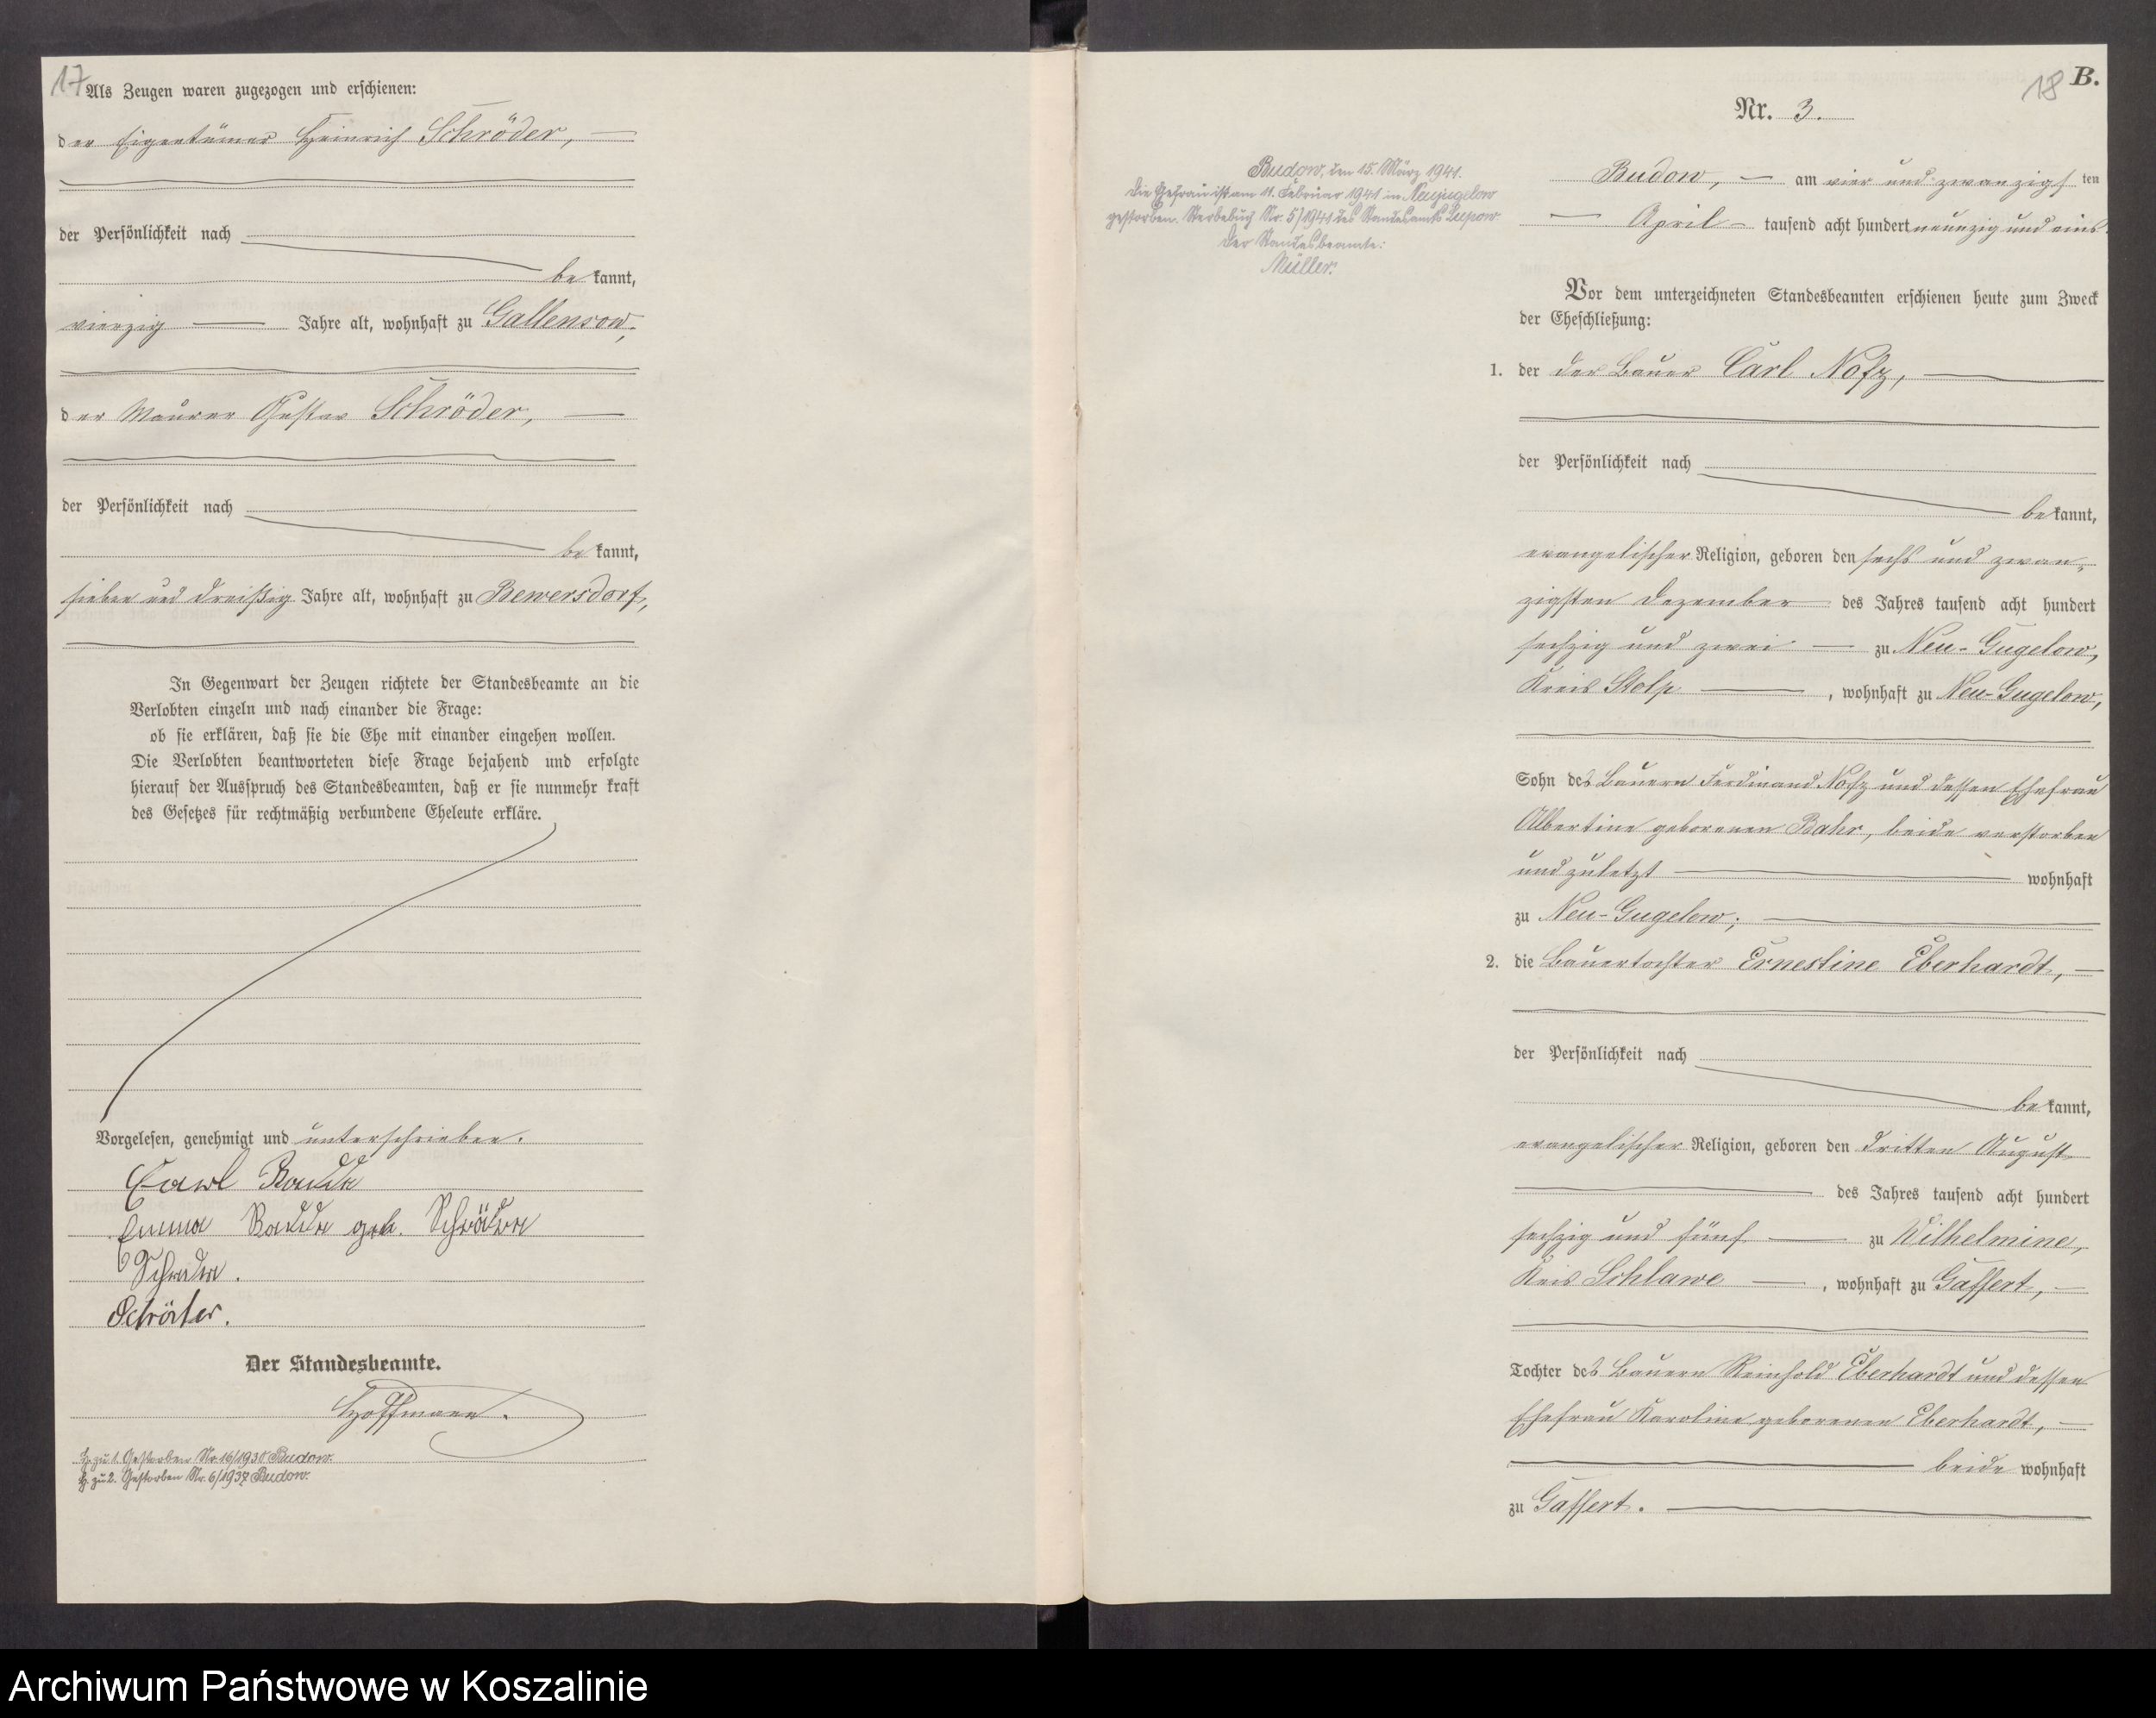 17
Als Zeugen waren zugezogen und erschienen:
der Eigentümer Heinrich Schröder,
der Persönlichkeit nach
bekannt,
vierzig Jahre alt, wohnhaft zu Gallensow,
der Maurer Gustav Schröder,
der Persönlichkeit nach
bekannt,
sieben und dreißig Jahre alt, wohnhaft zu Bewersdorf,
In Gegenwart der Zeugen richtete der Standesbeamte an die
Verlobten einzeln und nach einander die Frage:
ob sie erklären, daß sie die Ehe mit einander eingehen wollen.
Die Verlobten beantworteten diese Frage bejahend und erfolgte
hierauf der Ausspruch des Standesbeamten, daß er sie nunmehr kraft
des Gesetzes für rechtmäßig verbundene Eheleute erkläre.
Vorgelesen, genehmigt und unterschrieben.
Carl
Emma geb. Schröder
Schröder.
Der Standesbeamte.
Hoffmann.
H. zu 1. Gestorben Nr. 16/1930 Budow.
H. zu 2. Gestorben Nr. 6/1937 Budow.
18
B.
Nr. 3.
Budow, den 15. März 1941.
Die Ehefrau ist am 11. Februar 1941 in Neujugelow
gestorben. Sterbebuch Nr. 5/1941 des Standesamts Lupow
Der Standesbeamte:
Müller.
Budow, am vier und zwanzigsten
April tausend acht hundert neunzig und eins.
Vor dem unterzeichneten Standesbeamten erschienen heute zum Zweck
der Eheschließung:
1. der der Bauer Carl Nofz,
der Persönlichkeit nach
bekannt,
evangelischer Religion, geboren den sechs und zwan-
zigsten Dezember des Jahres tausend acht hundert
sechzig und zwei zu Neu-Gugelow,
Kreis Stolp, wohnhaft zu Neu-Gugelow,
Sohn des Bauern Ferdinand Nofz und dessen Ehefrau
Albertine geborenen Bahr, beide verstorben
und zuletzt wohnhaft
zu Neu-Gugelow;
2. die Bauertochter Ernestine Eberhardt,
der Persönlichkeit nach
bekannt,
evangelischer Religion, geboren den dritten August
des Jahres tausend acht hundert
sechzig und fünf zu Wilhelmine,
Kreis Schlawe, wohnhaft zu Gaffert,
Tochter des Bauern Reinhold Eberhardt und dessen
Ehefrau Karoline geborenen Eberhardt,
beide wohnhaft
zu Gaffert.
Archiwum Państwowe w Koszalinie